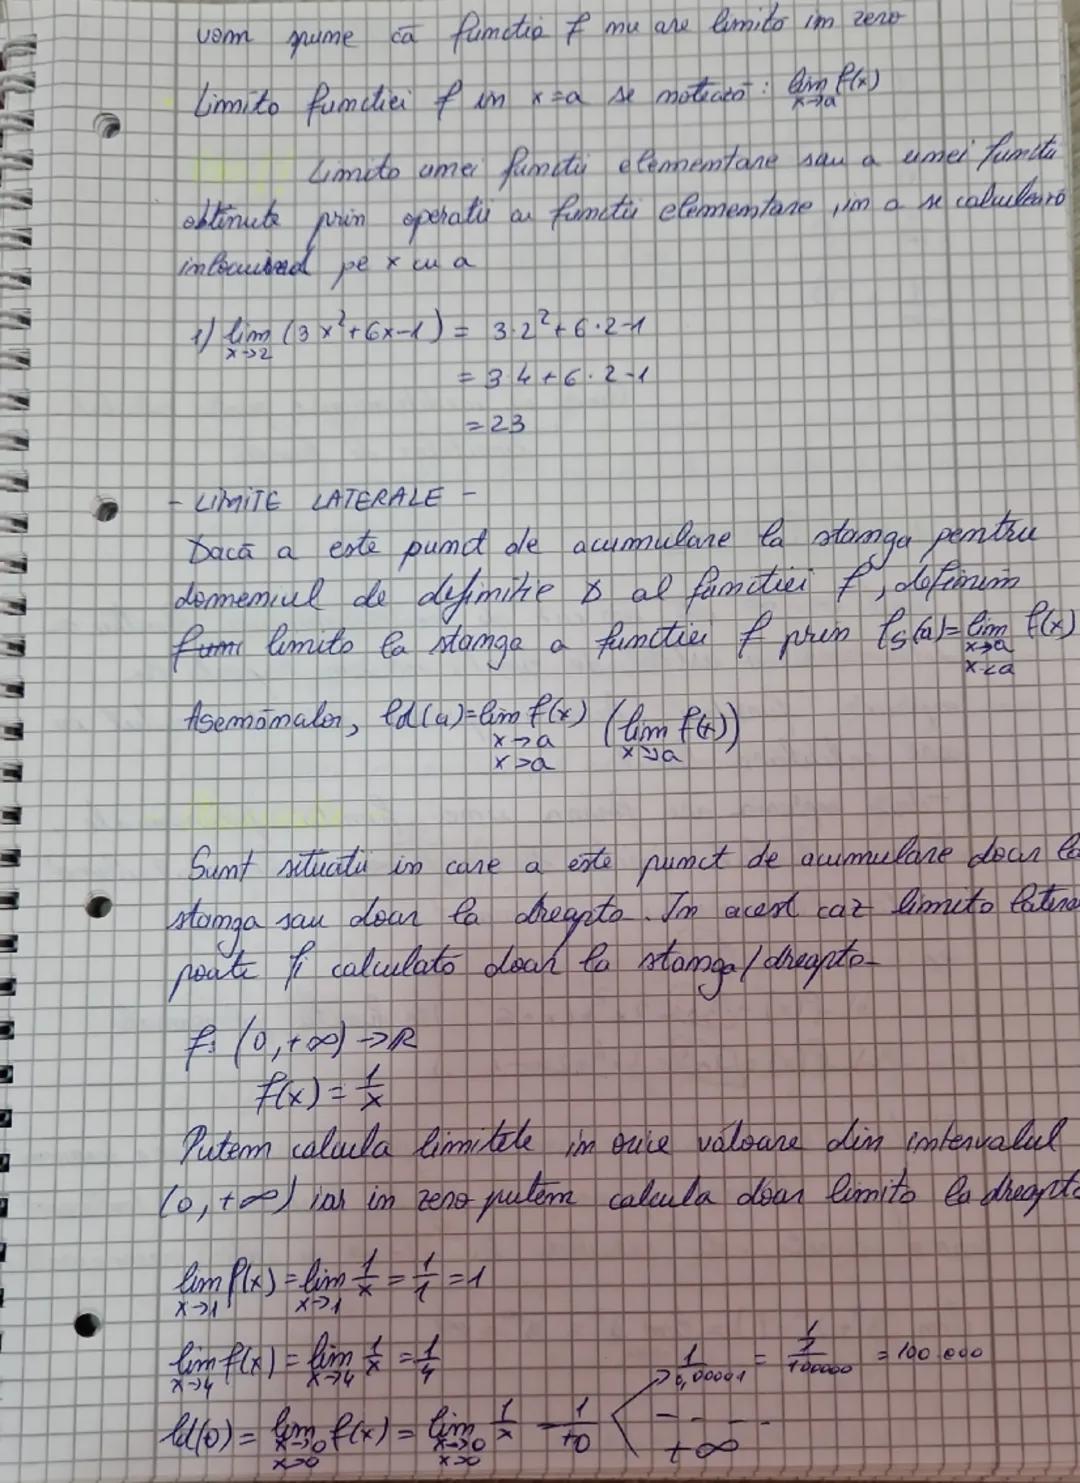 vom spune că functia f nu are limita in zero
Limita functiei f in x=a se notează: lim f(x)
x→a
Limita unei functii elementare sau a unei functii
obtinute prin operatii cu functii elementare, in a se calculează
inlocuind pe x cu a
1) lim (3x²+6x-1) = 3·2²+6·2-1
x→2
= 3·4+6·2-1
= 23
- LIMITE LATERALE -
Dacă a este punct de acumulare la stanga pentru
domeniul de definitie D al functiei f, definim
limita la stanga a functiei f prin ls(a)=lim f(x)
x→a
x<a
Asemănător, ld(a)=lim f(x) (lim f(x))
x→a x↘a
x>a
Sunt situatii in care a este punct de acumulare doar la
stanga sau doar la dreapta. In acest caz limita latera
poate fi calculată doar la stanga/dreapta
f: (0,+∞)→R
f(x)=1/x
Putem calcula limitele in orice valoare din intervalul
(0,+∞) iar in zero putem calcula doar limita la dreapta
lim f(x) = lim 1/x = 1/1 = 1
x→1 x→1
lim f(x) = lim 1/x = 1/4
x→4 x→4
1/0,00001 = 1/(1/100000) = 100.000
ld(0) = lim f(x) = lim 1/x = 1/+0 < - - - -
x→0 x→0
x>0 x>0
+∞